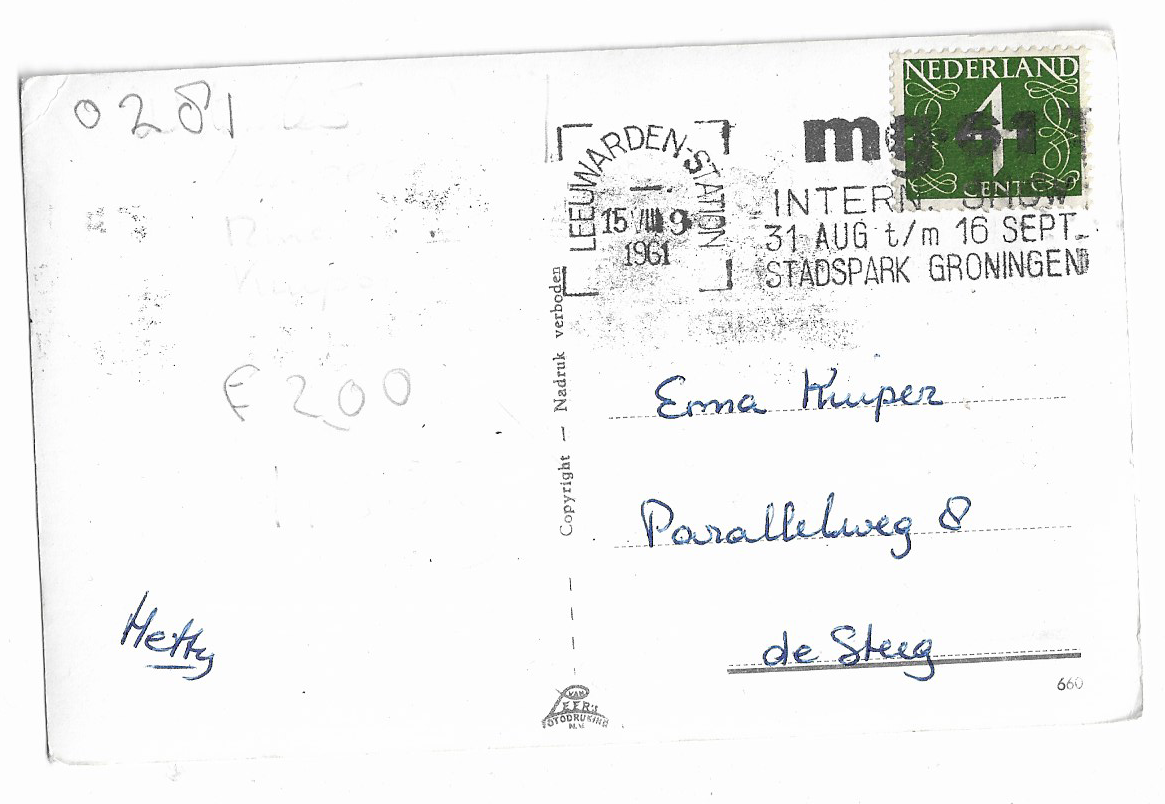 0281
F 200
Hetty
Copyright — Nadruk verboden
VAN
LEER'S
FOTODRUKING
N.V.
NEDERLAND
4
CENT
LEEUWARDEN-STATION
15 VIII 9
1961
INTERN. SHOW
31 AUG t/m 16 SEPT.
STADSPARK GRONINGEN
Erna Kuiper
Parallelweg 8
de Steeg
660